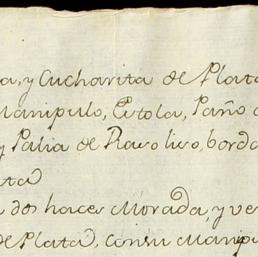 a, y Cucharita de Plata
Manipulo, Estola, Paño d
y Palia de Raso liso, borda
ata
a dos haces Morada, y ver
de Plata, con su Manipu